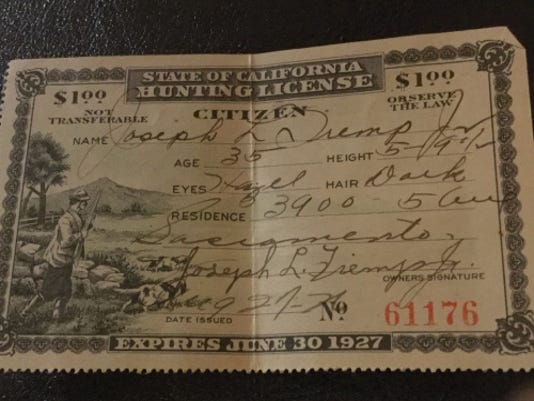 STATE OF CALIFORNIA
HUNTING LICENSE
$1.00 $1.00
NOT TRANSFERABLE
CITIZEN
OBSERVE THE LAW
NAME Joseph L. Tremp Jr
AGE 35 HEIGHT 5-9
EYES Hazel HAIR Dark
RESIDENCE 3900 - 5 Ave
Sacramento
Joseph L. Tremp Jr.
OWNERS SIGNATURE
DATE ISSUED
No 61176
EXPIRES JUNE 30 1927